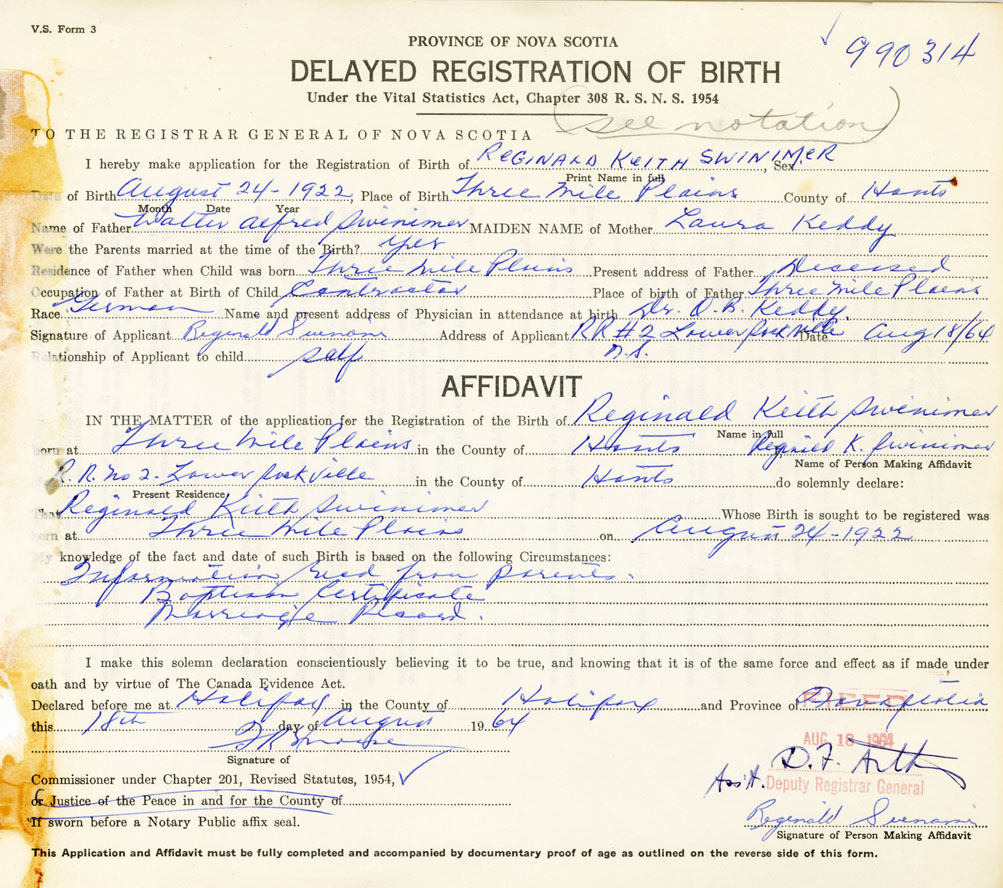 V.S. Form 3
990314
PROVINCE OF NOVA SCOTIA
DELAYED REGISTRATION OF BIRTH
Under the Vital Statistics Act, Chapter 308 R. S. N. S. 1954
(see notation)
TO THE REGISTRAR GENERAL OF NOVA SCOTIA
I hereby make application for the Registration of Birth of REGINALD KEITH SWINIMER, Sex
Print Name in full
Date of Birth August 24-1922, Place of Birth Three Mile Plains County of Hants
Month Date Year
Name of Father Walter Alfred Swinimer MAIDEN NAME of Mother Laura Keddy
Were the Parents married at the time of the Birth? Yes
Residence of Father when Child was born Three Mile Plains Present address of Father Deceased
Occupation of Father at Birth of Child Contractor Place of birth of Father Three Mile Plains
Race German Name and present address of Physician in attendance at birth Dr. O.B. Keddy
Signature of Applicant Reginald Address of Applicant R.R #2 Lower Date Aug 18/64
N.S.
Relationship of Applicant to child self
AFFIDAVIT
IN THE MATTER of the application for the Registration of the Birth of Reginald Keith Swinimer
Name in full
born at Three Mile Plains in the County of Hants Reginald K. Swinimer
Name of Person Making Affidavit
R.R. No 2. Lower in the County of Hants do solemnly declare:
Present Residence
That Reginald Keith Swinimer Whose Birth is sought to be registered was
born at Three Mile Plains on August 24-1922
My knowledge of the fact and date of such Birth is based on the following Circumstances:
Information Recd from parents.
Baptism Certificate
Marriage Record.
I make this solemn declaration conscientiously believing it to be true, and knowing that it is of the same force and effect as if made under
oath and by virtue of The Canada Evidence Act.
Declared before me at Halifax in the County of Halifax and Province of Nova Scotia
FILED
this 18th day of August 1964
AUG 18 1964
Signature of
D.F.
Commissioner under Chapter 201, Revised Statutes, 1954,
Ass't. Deputy Registrar General
or Justice of the Peace in and for the County of
Reginald
If sworn before a Notary Public affix seal.
Signature of Person Making Affidavit
This Application and Affidavit must be fully completed and accompanied by documentary proof of age as outlined on the reverse side of this form.